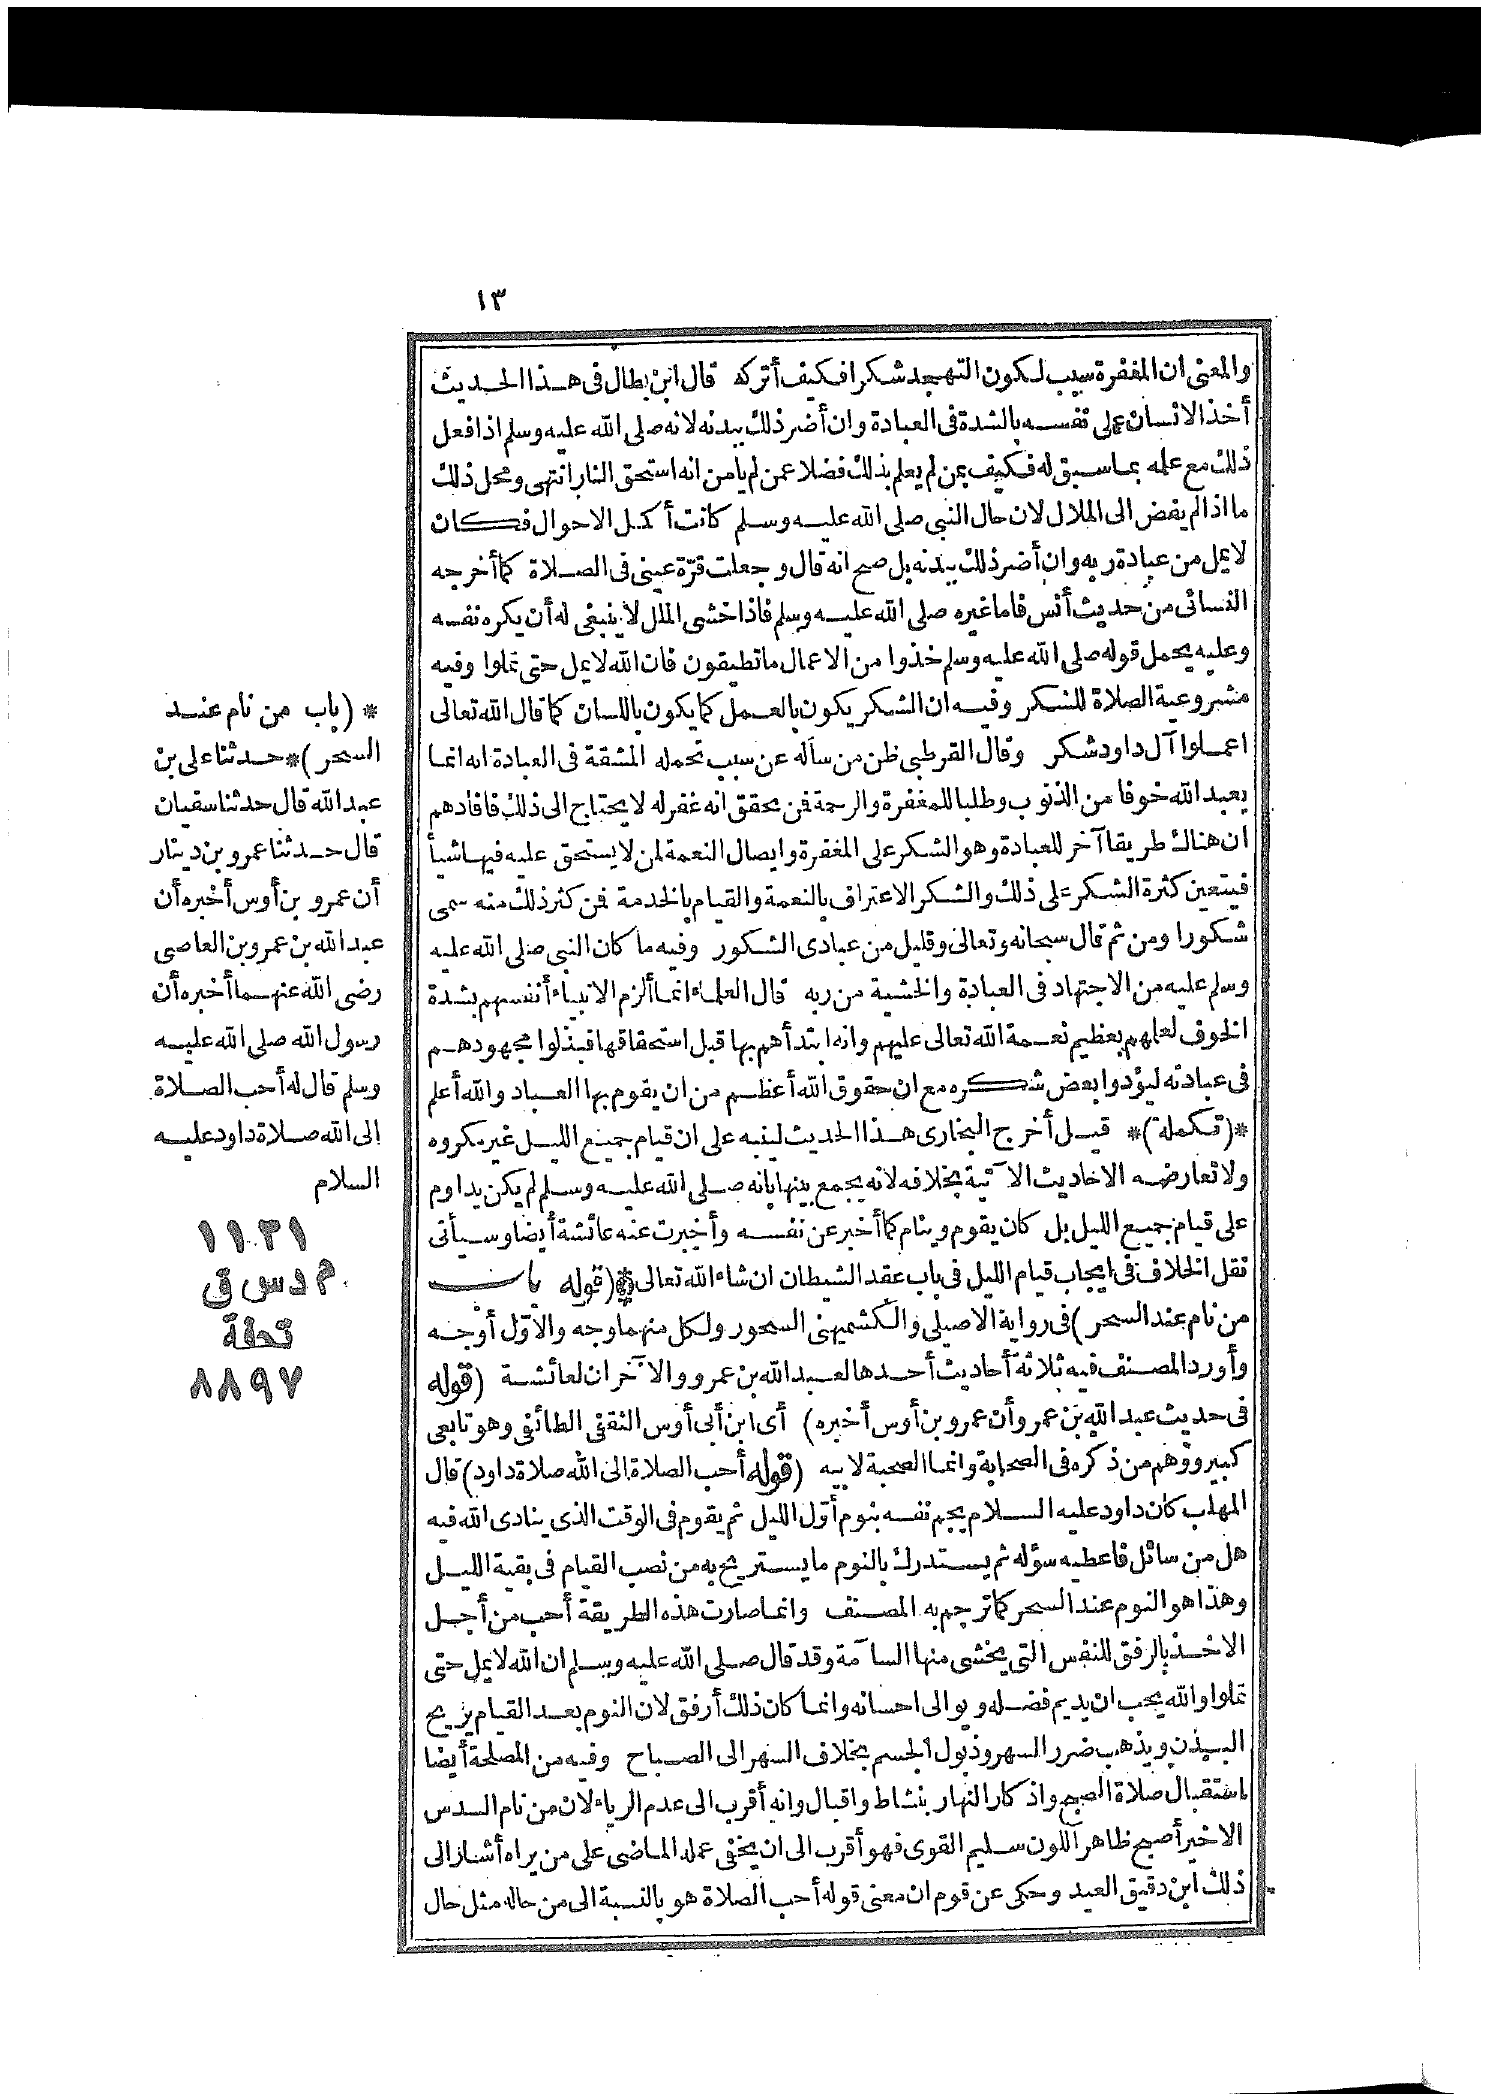 ١٣
والمعنى ان المغفرة سبب لكون التهجد شكرا فكيف أتركه قال ابن بطال فى هذا الحديث
أخذ الانسان على نفسه بالشدة فى العبادة وان أضر ذلك ببدنه لانه صلى الله عليه وسلم اذا فعل
ذلك مع علمه بما سبق له فكيف بمن لم يعلم بذلك فضلا عمن لم يأمن انه استحق النار انتهى ومحل ذلك
ما اذا لم يفض الى الملال لان حال النبى صلى الله عليه وسلم كانت أكمل الاحوال فكان
لا يمل من عبادة ربه وان أضر ذلك ببدنه بل صح انه قال وجعلت قرّة عينى فى الصلاة كما أخرجه
النسائى من حديث أنس فاما غيره صلى الله عليه وسلم فاذا خشى الملل لا ينبغى له أن يكره نفسه
وعليه يحمل قوله صلى الله عليه وسلم خذوا من الاعمال ما تطيقون فان الله لا يمل حتى تملوا وفيه
مشروعية الصلاة للشكر وفيه ان الشكر يكون بالعمل كما يكون باللسان كما قال الله تعالى
اعملوا آل داود شكر وقال القرطبى ظن من سأله عن سبب تحمله المشقة فى العبادة انه انما
يعبد الله خوفا من الذنوب وطلبا للمغفرة والرحمة فمن تحقق انه غفر له لا يحتاج الى ذلك فافادهم
ان هناك طريقا آخر للعبادة وهو الشكر على المغفرة وايصال النعمة لمن لا يستحق عليه فيها شيأ
فيتعين كثرة الشكر على ذلك والشكر الاعتراف بالنعمة والقيام بالخدمة فمن كثر ذلك منه سمى
شكورا ومن ثم قال سبحانه وتعالى وقليل من عبادى الشكور وفيه ما كان النبى صلى الله عليه
وسلم عليه من الاجتهاد فى العبادة والخشية من ربه قال العلماء انما ألزم الانبياء أنفسهم بشدة
الخوف لعلمهم بعظيم نعمة الله تعالى عليهم وانه ابتدأهم بها قبل استحقاقها فبذلوا مجهودهم
فى عبادته ليؤدوا بعض شكره مع ان حقوق الله أعظم من ان يقوم بها العباد والله أعلم
*(تكملة)* قيل أخرج البخارى هذا الحديث لينبه على ان قيام جميع الليل غير مكروه
ولا تعارضه الاحاديث الآتية بخلافه لانه يجمع بينها بانه صلى الله عليه وسلم لم يكن يداوم
على قيام جميع الليل بل كان يقوم وينام كما أخبر عن نفسه وأخبرت عنه عائشة أيضا وسيأتى
نقل الخلاف فى ايجاب قيام الليل فى باب عقد الشيطان ان شاء الله تعالى *(قوله باب
من نام عند السحر) فى رواية الاصيلى والكشميهنى السحور ولكل منهما وجه والاوّل أوجه
وأورد المصنف فيه ثلاثة أحاديث أحدها لعبد الله بن عمرو والآخران لعائشة (قوله
فى حديث عبد الله بن عمرو أن عمرو بن أوس أخبره) أى ابن أبى أوس الثقفى الطائفى وهو تابعى
كبير ووهم من ذكره فى الصحابة وانما الصحبة لابيه (قوله أحب الصلاة الى الله صلاة داود) قال
المهلب كان داود عليه السلام يجم نفسه بنوم أوّل الليل ثم يقوم فى الوقت الذى ينادى الله فيه
هل من سائل فاعطيه سؤله ثم يستدرك بالنوم ما يستريح به من نصب القيام فى بقية الليل
وهذا هو النوم عند السحر كما ترجم به المصنف وانما صارت هذه الطريقة أحب من أجل
الاخذ بالرفق للنفس التى يخشى منها السآمة وقد قال صلى الله عليه وسلم ان الله لا يمل حتى
تملوا والله يحب ان يديم فضله ويوالى احسانه وانما كان ذلك أرفق لان النوم بعد القيام يريح
البدن ويذهب ضرر السهر وذبول الجسم بخلاف السهر الى الصباح وفيه من المصلحة أيضا
استقبال صلاة الصبح واذكار النهار بنشاط واقبال وانه أقرب الى عدم الرياء لان من نام السدس
الاخير أصبح ظاهر اللون سليم القوى فهو أقرب الى ان يخفى عمله الماضى على من يراه أشار الى
ذلك ابن دقيق العيد وحكى عن قوم ان معنى قوله أحب الصلاة هو بالنسبة الى من حاله مثل حال
* (باب من نام عند
السحر)* حدثنا على بن
عبد الله قال حدثنا سفيان
قال حدثنا عمرو بن دينار
أن عمرو بن أوس أخبره أن
عبد الله بن عمرو بن العاصى
رضى الله عنهما أخبره أن
رسول الله صلى الله عليه
وسلم قال له أحب الصلاة
إلى الله صلاة داود عليه
السلام
١١٣١
م د س ق
تحفة
٨٨٩٧